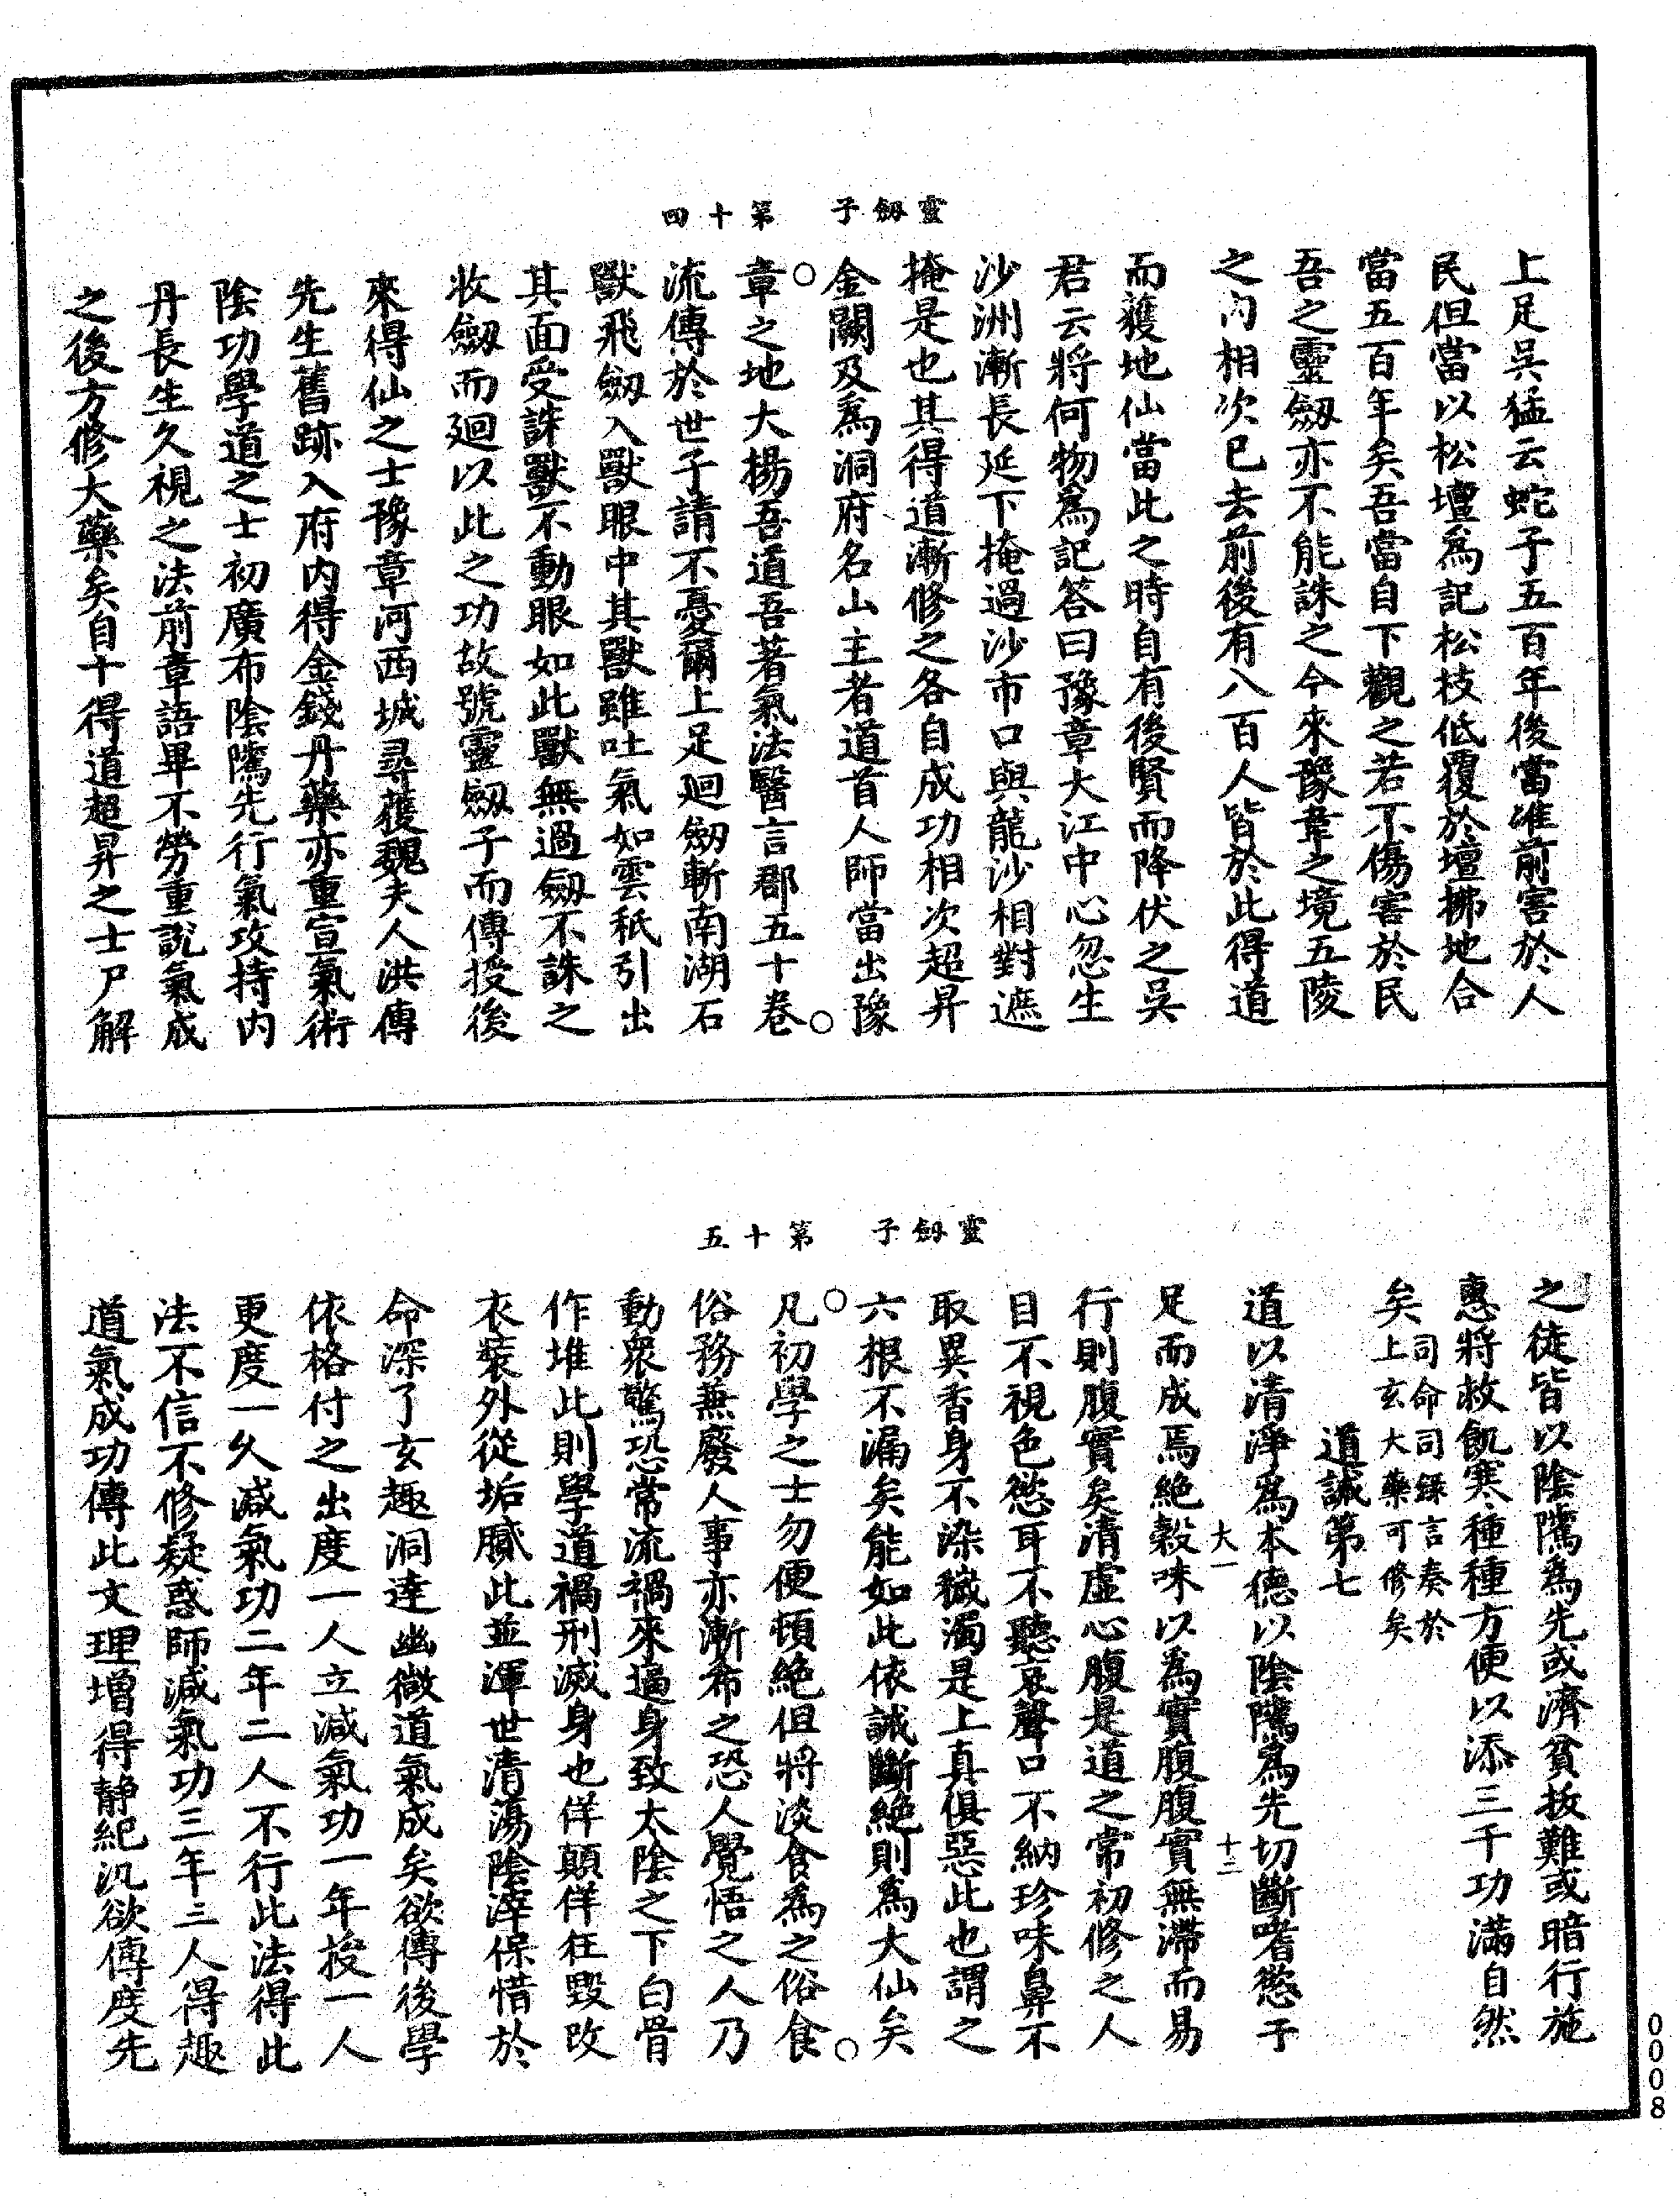 靈劒子　第十四
上足吳猛云蛇子五百年後當准前害於人
民但當以松壇為記松枝低覆於壇拂地合
當五百年矣吾當自下觀之若不傷害於民
吾之靈劒亦不能誅之今來豫章之境五陵
之內相次已去前後有八百人皆於此得道
而獲地仙當此之時自有後賢而降伏之吳
君云將何物為記答曰豫章大江中心忽生
沙洲漸長延下掩過沙市口與龍沙相對遮
掩是也其得道漸修之各自成功相次超昇
金闕及為洞府名山主者道首人師當出豫
章之地大揚吾道吾著氣法醫言郡五十卷
流傳於世子請不憂爾上足廻劒斬南湖石
獸飛劒入獸眼中其獸雖吐氣如雲秖引出
其面受誅獸不動眼如此獸無過劒不誅之
收劒而廻以此之功故號靈劒子而傳授後
來得仙之士豫章河西城尋蒦魏夫人洪傳
先生舊跡入府內得金錢丹藥亦重宣氣術
陰功學道之士初廣布陰隲先行氣攻持內
丹長生久視之法前章語畢不勞重說氣成
之後方修大藥矣自十得道超昇之士尸解
靈劒子　第十五
之徒皆以陰隲為先或濟貧拔難或暗行施
惠將救飢寒種種方便以添三千功滿自然
矣司命司錄言奏於
上玄大藥可修矣
道誡第七
道以清淨為本德以陰隲為先切斷嗜慾于
大一　十二
足而成焉絕穀味以為實腹腹實無滯而易
行則腹實矣清虛心腹是道之常初修之人
目不視色慾耳不聽哀聲口不納珍味鼻不
取異香身不染穢濁是上真俱惡此也謂之
六根不漏矣能如此依誡斷絕則為大仙矣
凡初學之士勿便頓絕但將淡食為之俗食
俗務蕪廢人事亦漸希之恐人覺悟之人乃
動衆驚恐常流禍來逼身致太陰之下白骨
作堆此則學道禍刑滅身也佯顛佯狂毀改
衣裝外從垢膩此並渾世清蕩陰滓保惜於
命深了玄趣洞達幽微道氣成矣欲傳後學
依格付之出度一人立減氣功一年授一人
更度一人減氣功二年二人不行此法得此
法不信不修疑惑師減氣功三年三人得趣
道氣成功傳此文理增得靜紀汎欲傳度先
0008